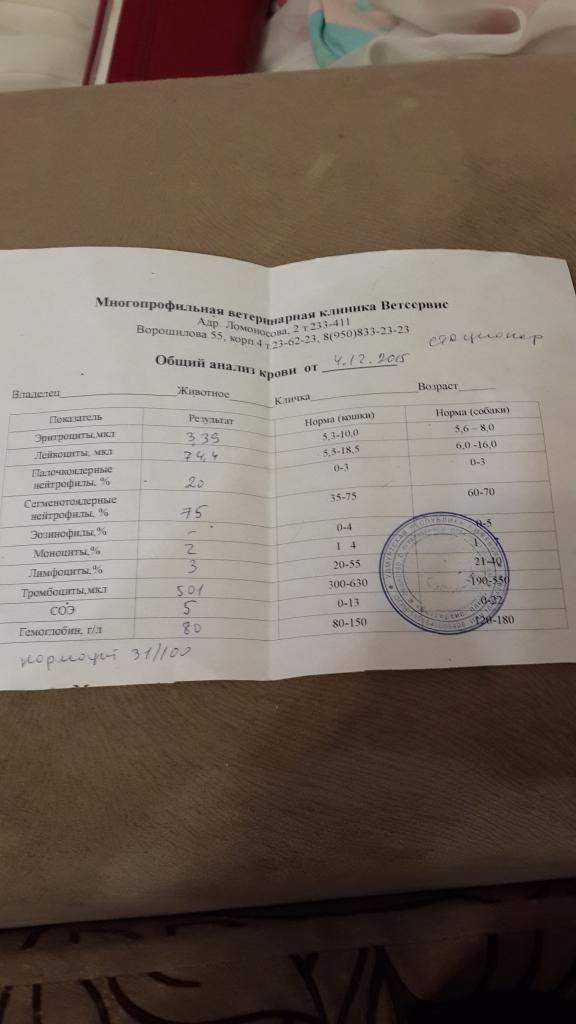 Многопрофильная ветеринарная клиника Ветсервис
Адр. Ломоносова, 2 т.233-411
Ворошилова 55, корп.4 т.23-62-23, 8(950)833-23-23
стационар
Общий анализ крови от 4.12.2015
Владелец Животное Кличка Возраст
Показатель Результат Норма (кошки) Норма (собаки)
Эритроциты,мкл 3,39 5,3-10,0 5,6 – 8,0
Лейкоциты, мкл 74,4 5,5-18,5 6,0 -16,0
Палочкоядерные нейтрофилы, % 20 0-3 0-3
Сегментоядерные нейтрофилы, % 75 35-75 60-70
Эозинофилы,% - 0-4 0-5
Моноциты,% 2 1 4
Лимфоциты,% 3 20-55 21-40
Тромбоциты,мкл 501 300-630 190-550
СОЭ 5 0-13 0-22
Гемоглобин, г/л 80 80-150 120-180
нормоцит 31/100